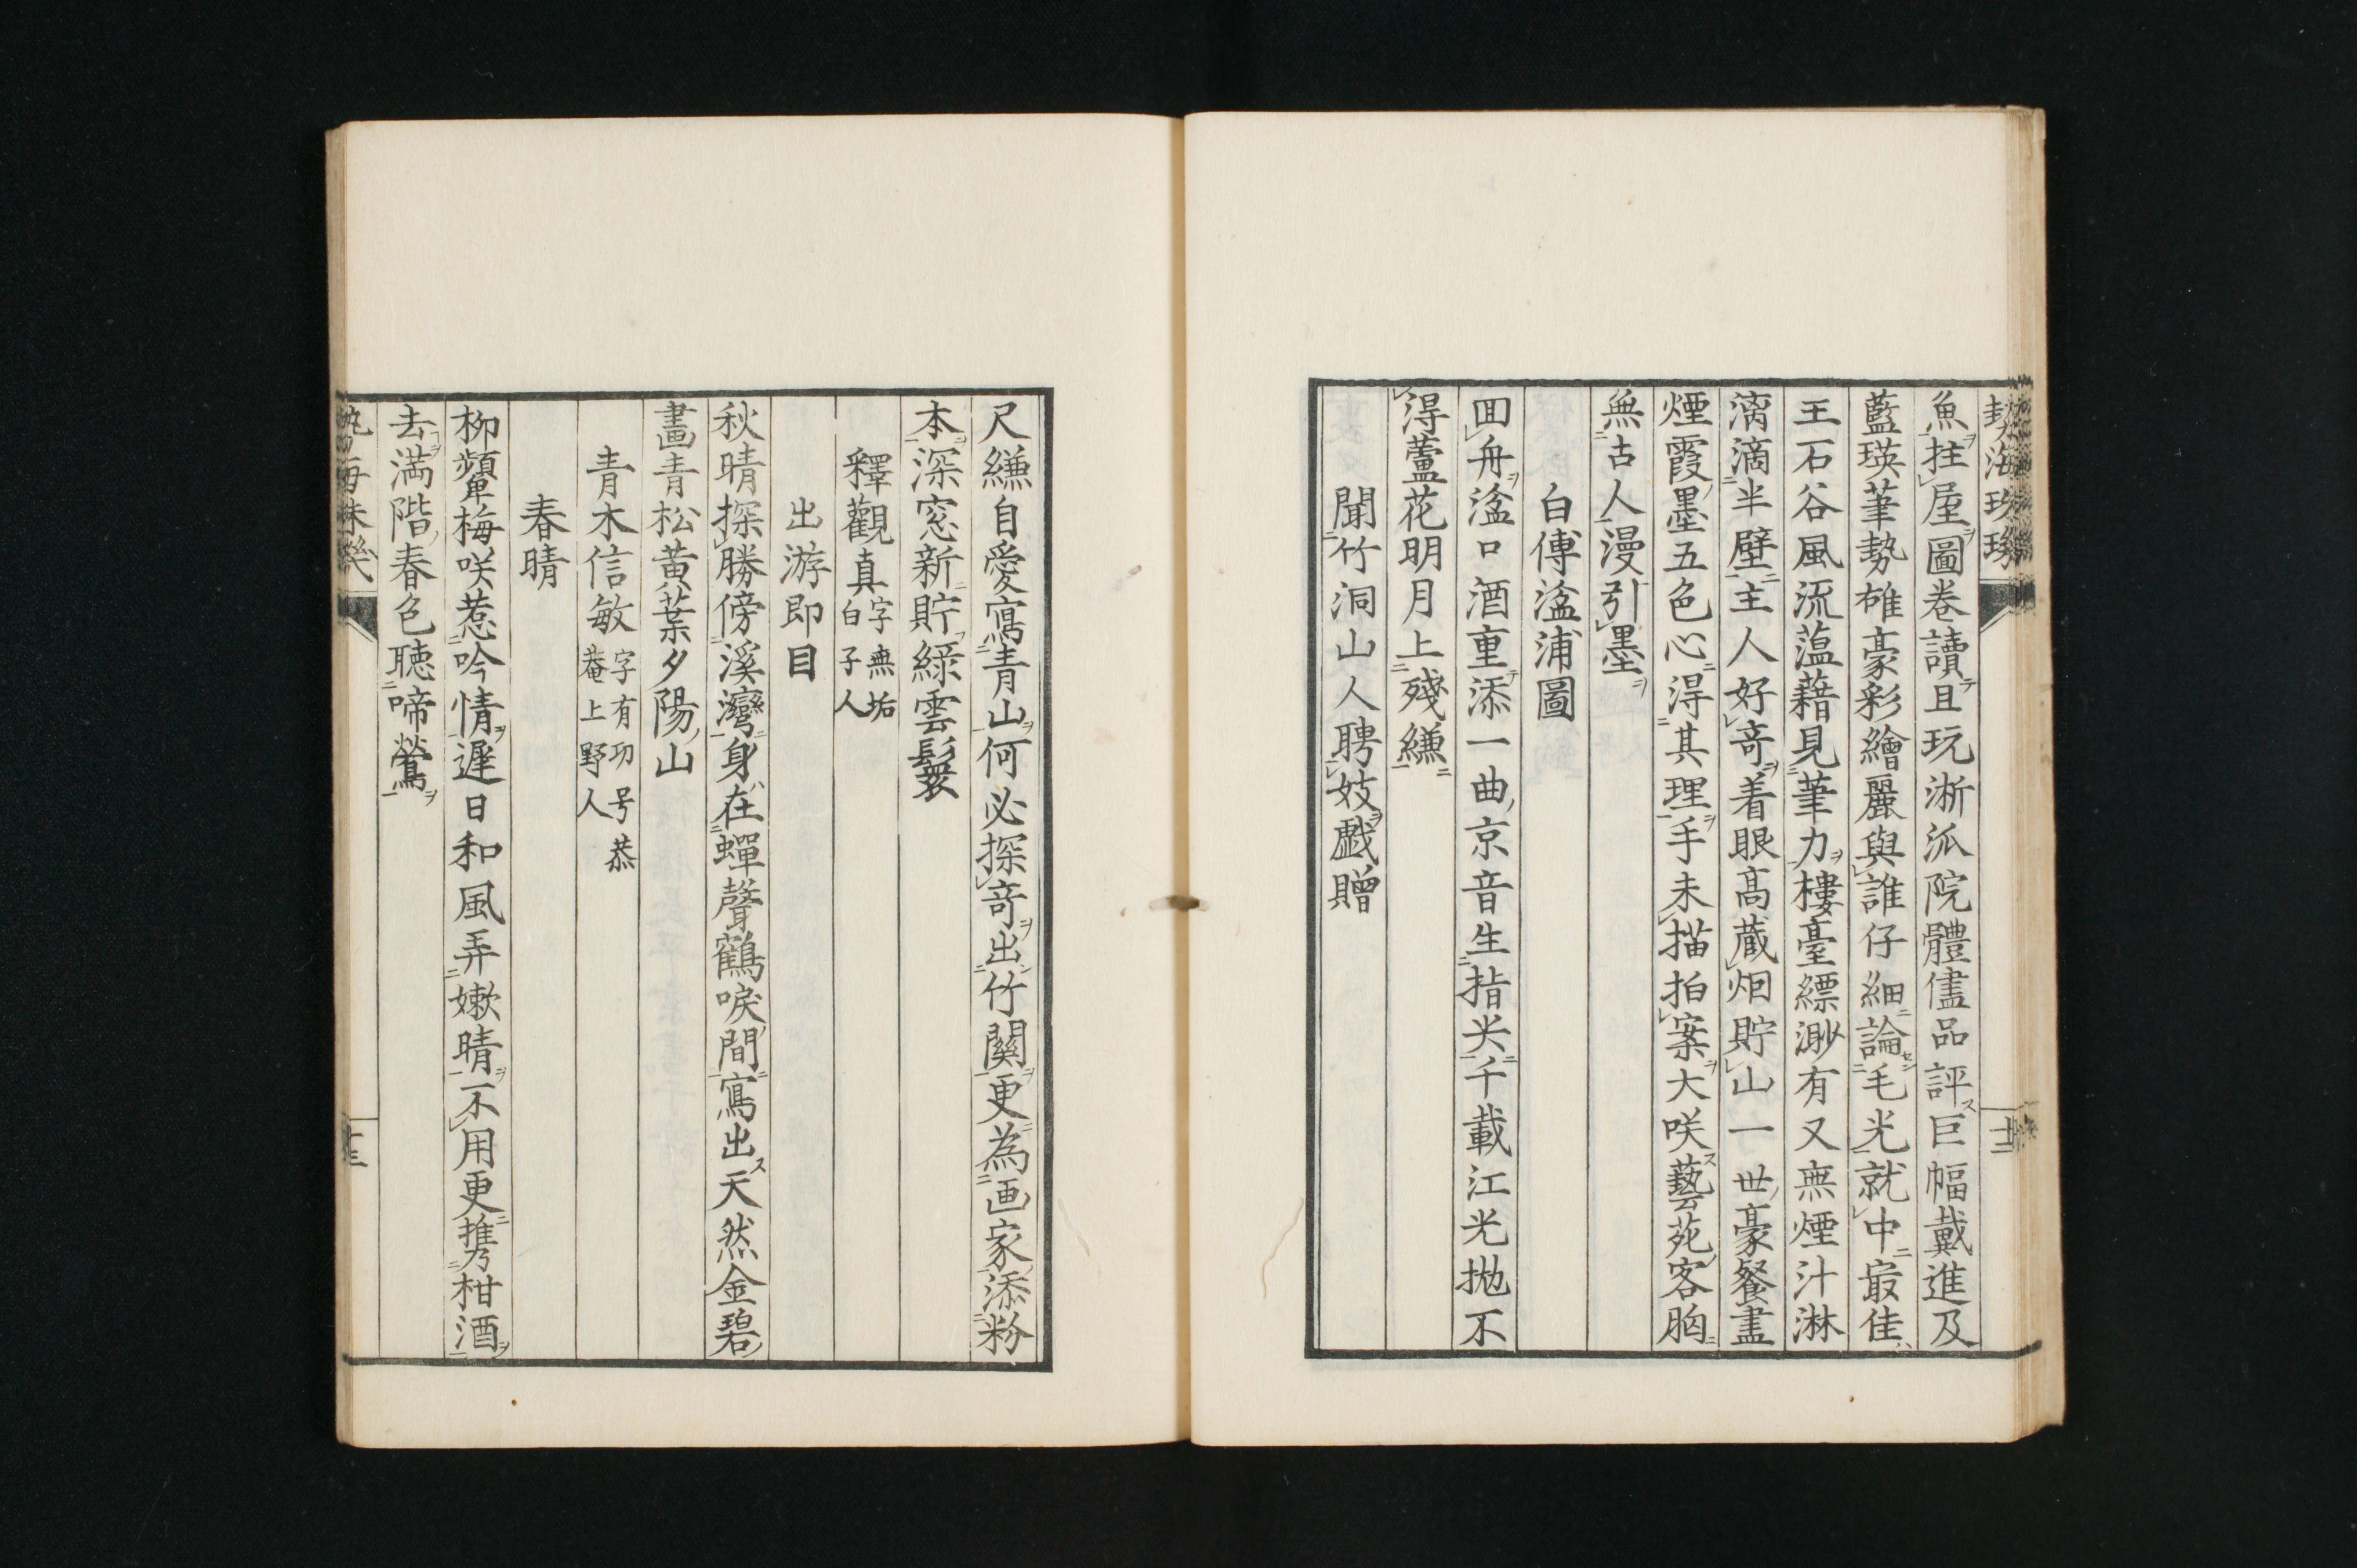 魚拄屋圖卷讀且玩淅泒院體儘品評巨幅戴進及
藍瑛筆勢雄豪彩繪麗與誰仔細論毛光就中最佳
王石谷風流薀藉見筆力樓臺縹渺有又無煙汁淋
漓滴半壁主人好奇着眼高蔵烟貯山一世豪餐畫
煙霞墨五色心得其理手未描拍案大咲藝苑客胸
無古人漫引墨
白傅湓浦圖
回舟湓口酒重添一曲京音生指尖千載江光抛不
得蘆花明月上殘縑
聞竹洞山人聘妓戯贈
尺縑自愛寫青山何必探奇出竹關更為画家添粉
本深窓新貯綠雲鬟
釋觀真字無垢
白子人
出游即目
秋晴探勝傍溪灣身在蟬聲鶴唳間寫出天然金碧
畫青松黃葉夕陽山
青木信敏字有功号恭
菴上野人
春晴
柳顰梅咲惹吟情遲日和風弄嫰晴不用更携柑酒
去満階春色聴啼鶯